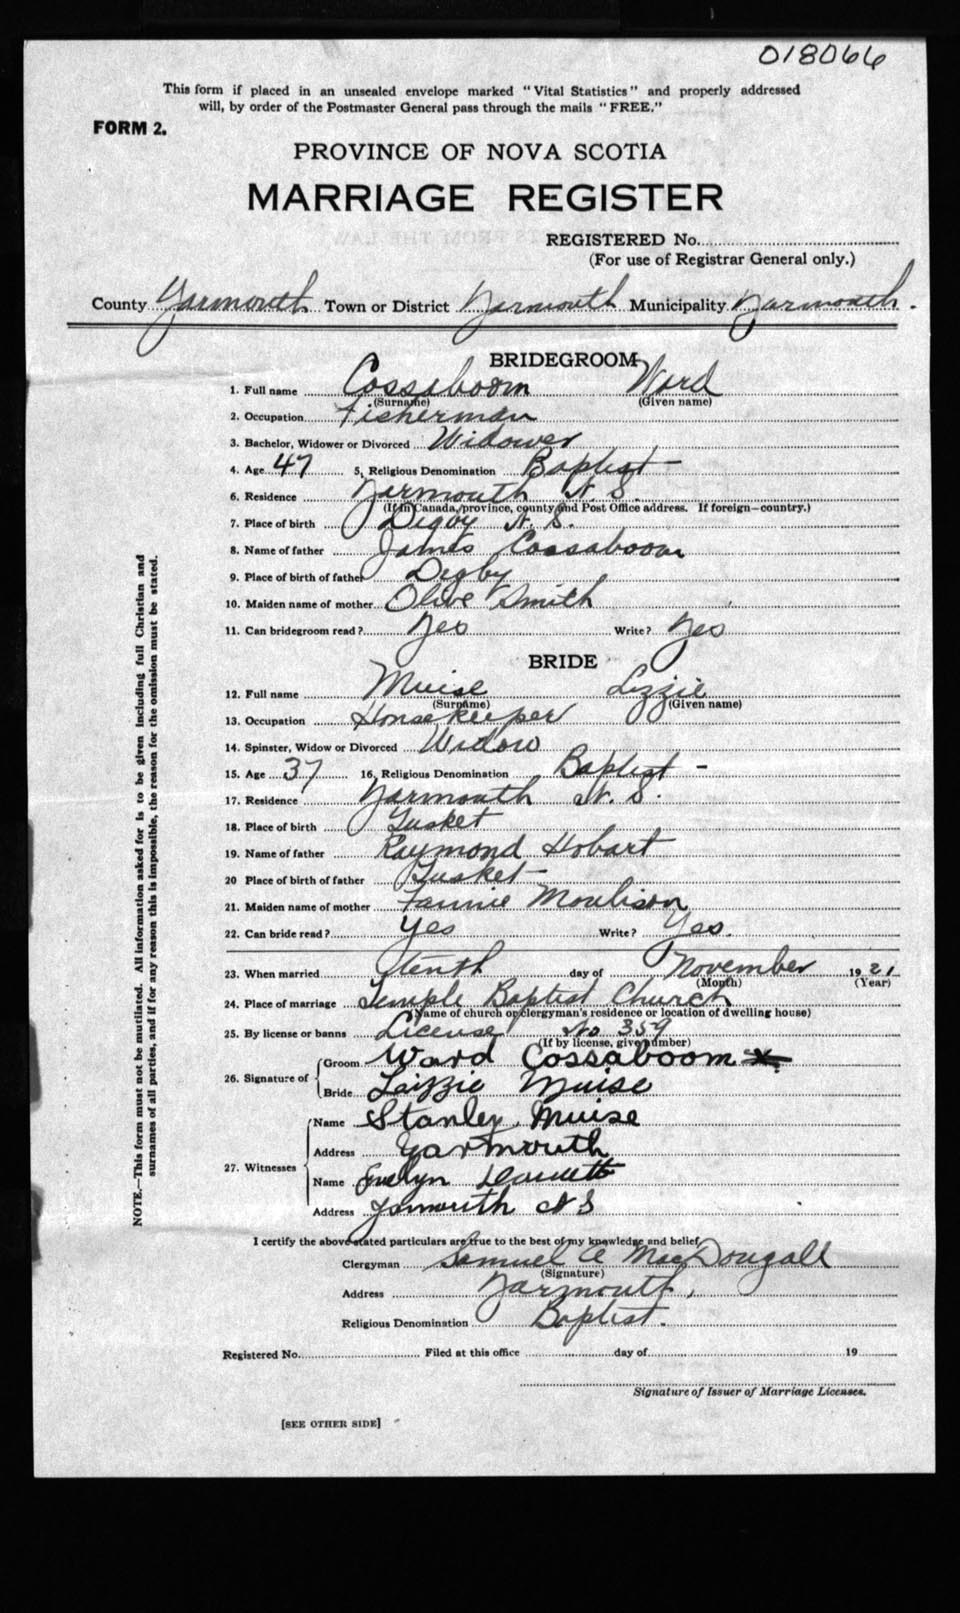 018066
This form if placed in an unsealed envelope marked "Vital Statistics" and properly addressed
will, by order of the Postmaster General pass through the mails "FREE."
FORM 2.
PROVINCE OF NOVA SCOTIA
MARRIAGE REGISTER
REGISTERED No.
(For use of Registrar General only.)
County Yarmouth Town or District Yarmouth Municipality Yarmouth.
BRIDEGROOM
1. Full name Cossaboom Ward
(Surname) (Given name)
2. Occupation Fisherman
3. Bachelor, Widower or Divorced Widower
4. Age 47 5. Religious Denomination Baptist -
6. Residence Yarmouth N. S.
(If in Canada, province, county and Post Office address. If foreign—country.)
7. Place of birth Digby N. S.
8. Name of father James Cossaboom
9. Place of birth of father Digby
10. Maiden name of mother Olive Smith
11. Can bridegroom read? Yes Write? Yes
BRIDE
12. Full name Muise Lizzie
(Surname) (Given name)
13. Occupation Housekeeper
14. Spinster, Widow or Divorced Widow
15. Age 37 16. Religious Denomination Baptist -
17. Residence Yarmouth N. S.
18. Place of birth Tusket
19. Name of father Raymond Hobart
20 Place of birth of father Tusket -
21. Maiden name of mother Fannie Moulison
22. Can bride read? Yes Write? Yes.
23. When married tenth day of November 1921
(Month) (Year)
24. Place of marriage Temple Baptist Church
(Name of church or clergyman's residence or location of dwelling house)
25. By license or banns License No 359
(If by license, give number)
26. Signature of Groom Ward Cossaboom x
Bride Lizzie Muise
27. Witnesses Name Stanley Muise
Address Yarmouth
Name Evelyn
Address Yarmouth NS
I certify the above stated particulars are true to the best of my knowledge and belief,
Clergyman Samuel A MacDougall
(Signature)
Address Yarmouth,
Religious Denomination Baptist.
Registered No. Filed at this office day of 19
Signature of Issuer of Marriage Licenses.
[SEE OTHER SIDE]
NOTE.—This form must not be mutilated. All information asked for is to be given including full Christian and
surnames of all parties, and if for any reason this is impossible, the reason for the omission must be stated.